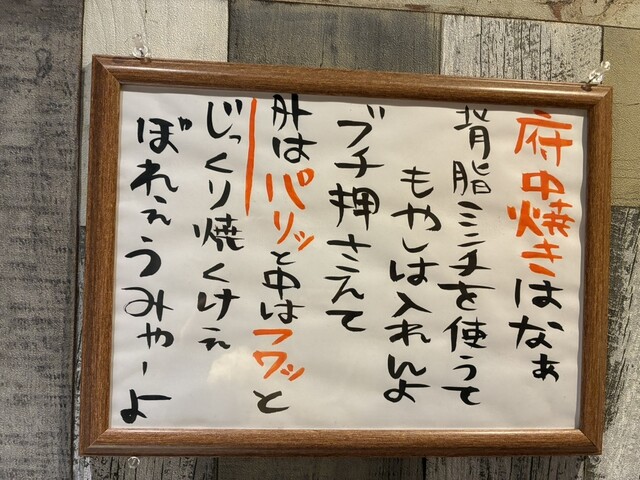 府中焼きはなぁ
背脂ミンチを使うて
もやしは入れんよ
ブチ押さえて
外はパリッと中はフワッと
じっくり焼くけぇ
ぼれぇうみゃーよ